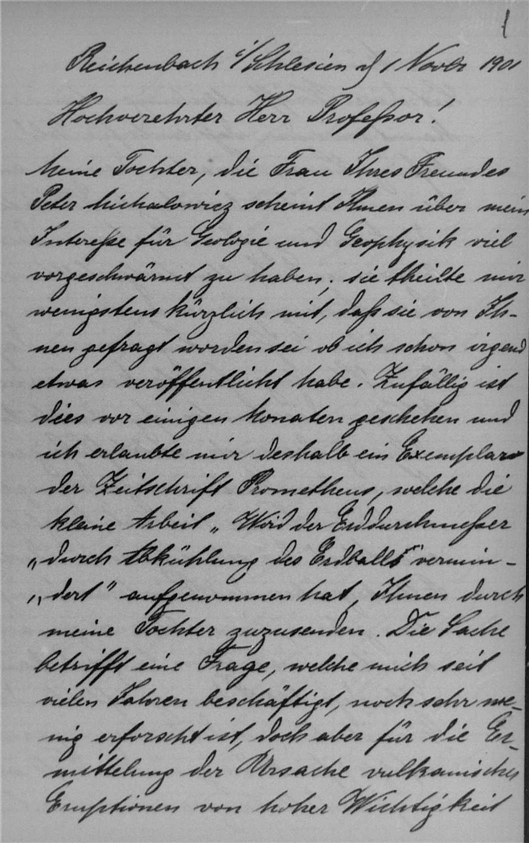 1
Reichenbach i/Schlesien d/ 1 Novbr 1901
Hochverehrter Herr Professor!
Meine Tochter, die Frau Ihres Freundes
Peter Michalowicz scheint Ihnen über mein
Interesse für Geologie und Geophysik viel
vorgeschwärmt zu haben; sie theilte mir
wenigstens kürzlich mit, daß sie von Ih-
nen gefragt worden sei ob ich schon irgend
etwas veröffentlicht habe. Zufällig ist
dies vor einigen Monaten geschehen und
ich erlaubte mir deshalb ein Exemplar
der Zeitschrift Prometheus, welche die
kleine Arbeit „Wird der Erddurchmesser
„durch Abkühlung des Erdballs vermin-
„dert" aufgenommen hat, Ihnen durch
meine Tochter zuzusenden. Die Sache
betrifft eine Frage, welche mich seit
vielen Jahren beschäftigt, noch sehr we-
nig erforscht ist, doch aber für die Er-
mittelung der Ursache vulkanischer
Eruptionen von hoher Wichtigkeit